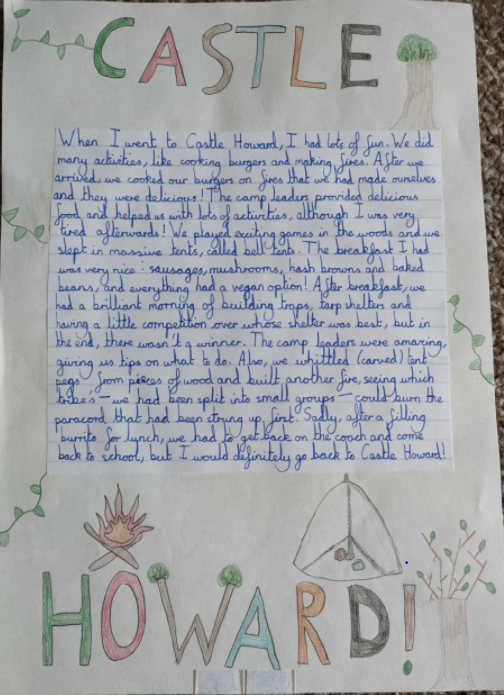 CASTLE
When I went to Castle Howard, I had lots of fun. We did
many activities, like cooking burgers and making fires. After we
arrived, we cooked our burgers on fires that we had made ourselves
and they were delicious! The camp leaders provided delicious
food and helped us with lots of activities, although I was very
tired afterwards! We played exciting games in the woods and we
slept in massive tents, called bell tents. The breakfast I had
was very nice: sausages, mushrooms, hash browns and baked
beans, and everything had a vegan option! After breakfast, we
had a brilliant morning of building traps, tarp shelters and
having a little competition over whose shelter was best, but in
the end, there wasn't a winner. The camp leaders were amazing,
giving us tips on what to do. Also, we whittled (carved) tent
pegs from pieces of wood and built another fire, seeing which
tribe's — we had been split into small groups — could burn the
paracord that had been strung up first. Sadly, after a filling
burrito for lunch, we had to get back on the coach and come
back to school, but I would definitely go back to Castle Howard!
HOWARD!